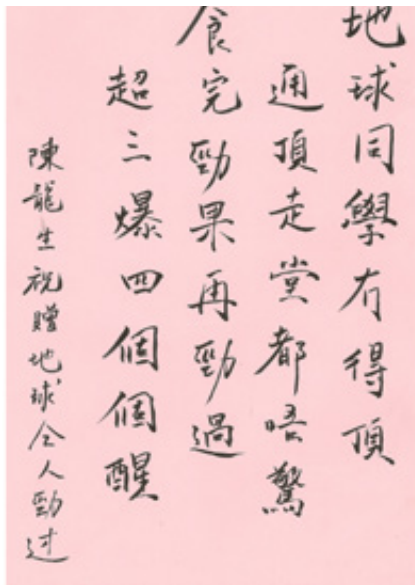 地球同學冇得頂
通頂走堂都唔驚
食完勁果再勁過
超三爆四個個醒
陳龍生祝贈地球仝人勁过